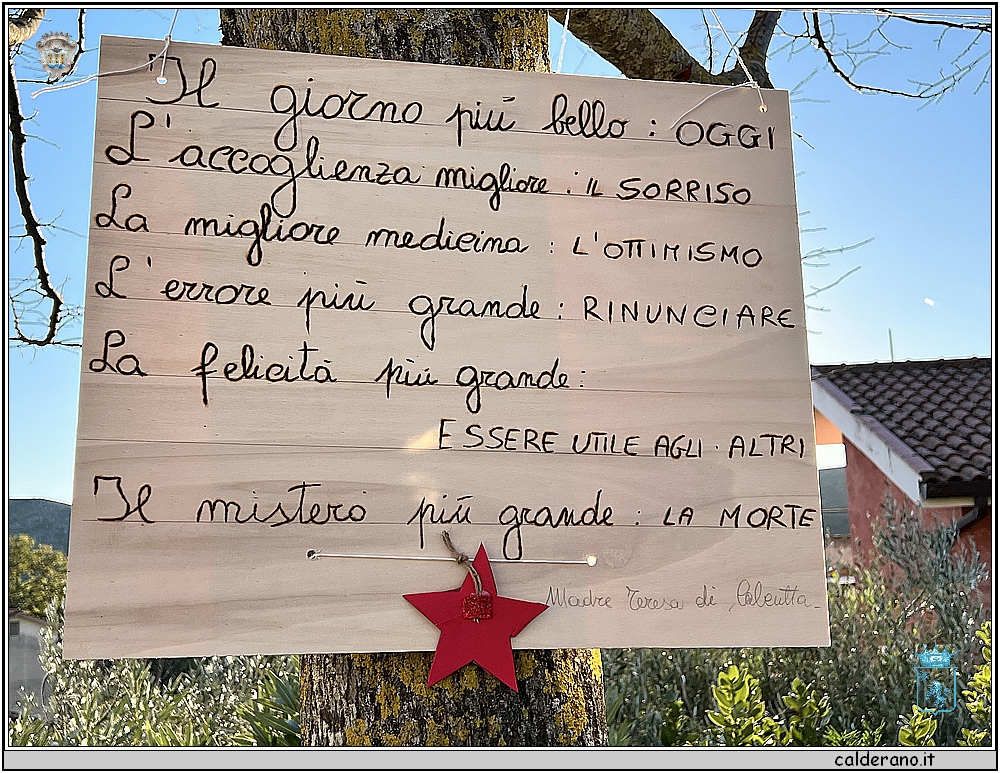 Il giorno più bello : OGGI
L'accoglienza migliore : IL SORRISO
La migliore medicina : L'OTTIMISMO
L'errore più grande : RINUNCIARE
La felicità più grande :
ESSERE UTILE AGLI ALTRI
Il mistero più grande : LA MORTE
Madre Teresa di Calcutta
calderano.it